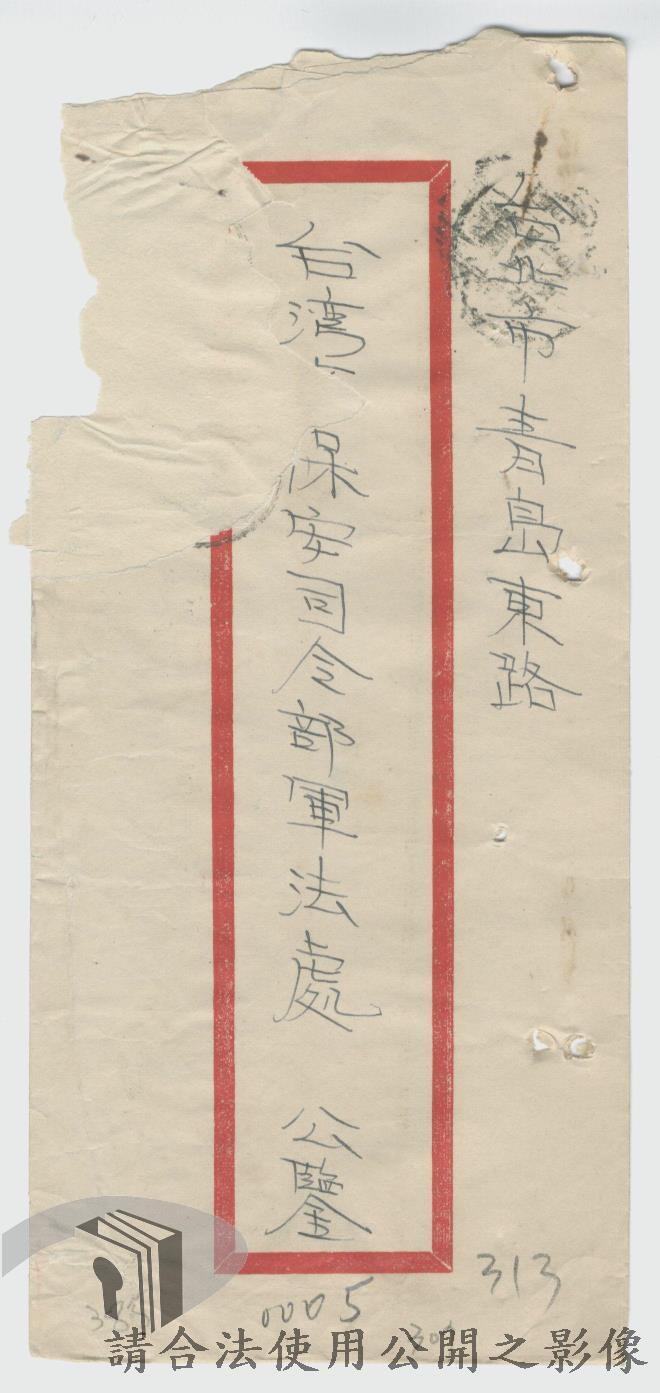 台北市青島東路
台湾 保安司令部軍法處 公鑒
313
0005
請合法使用公開之影像